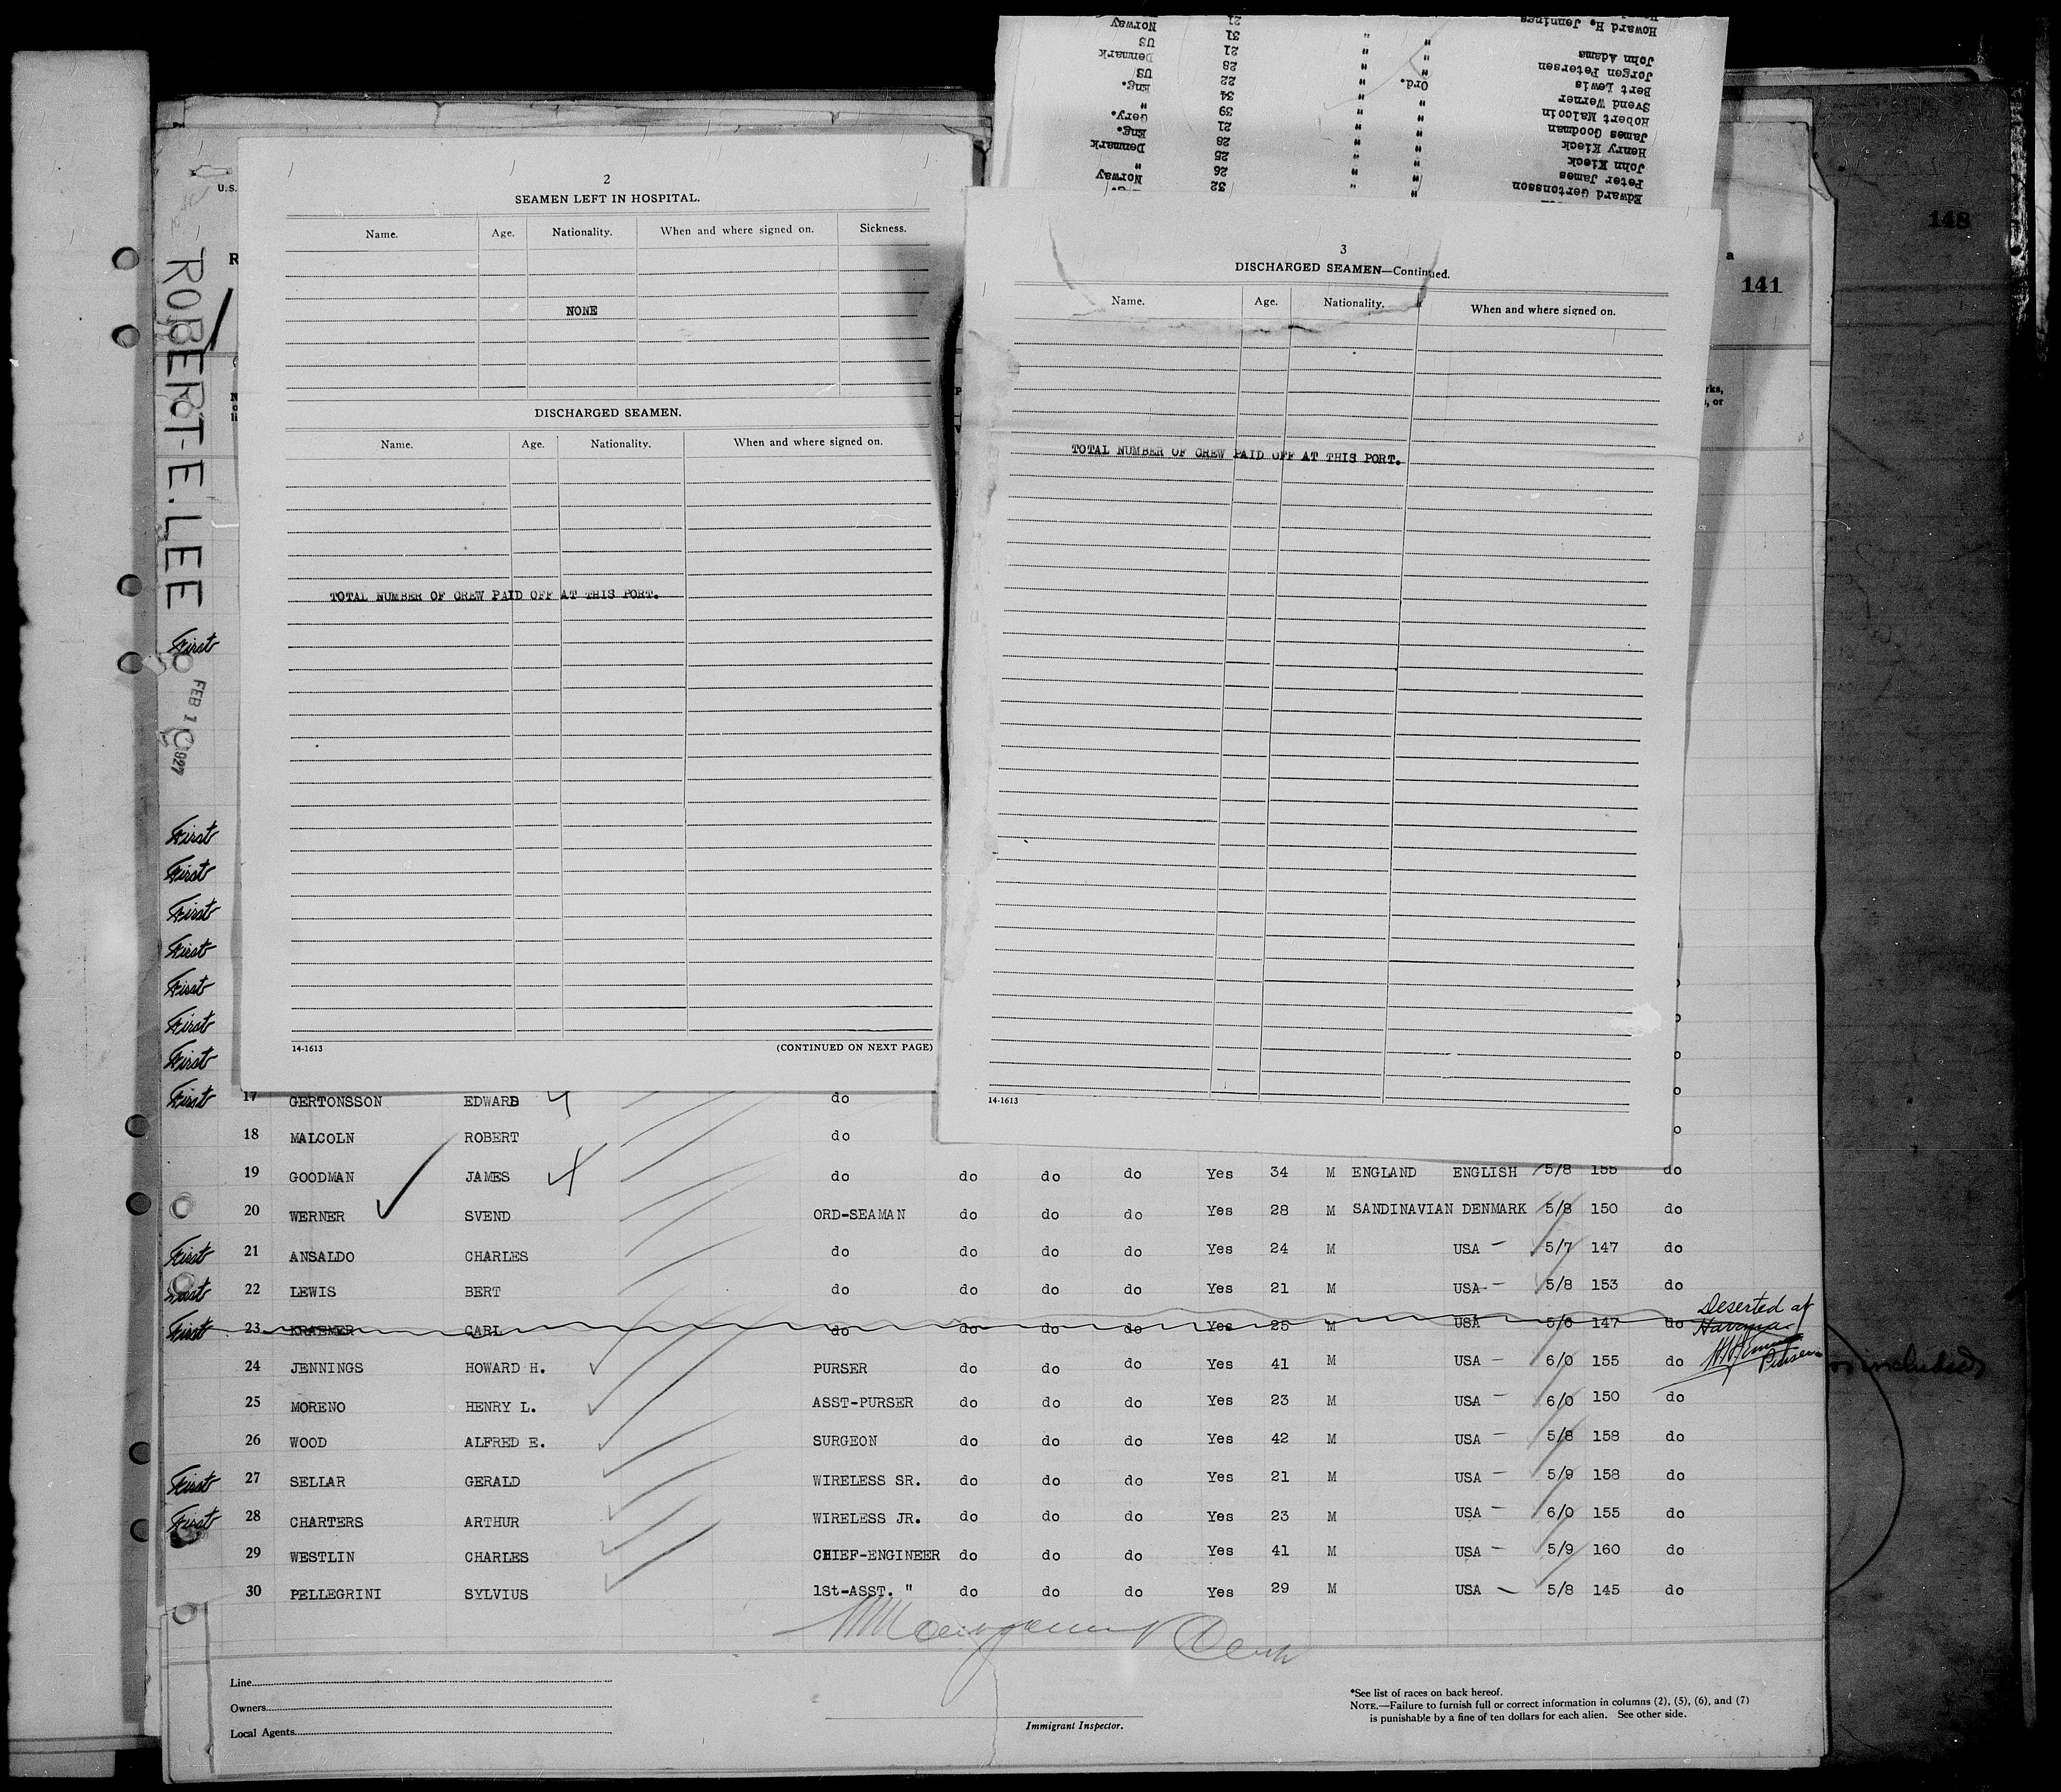 148
141
a
U.S.
R
ROBERT-E. LEE
FEB 10 1927
rks,
, or
Howard H. Jennings
John Adams " " 31 Norway
Jorgen Petersen " " 21 US
Bert Lewis Ord. " 28 Denmark
Svend Werner " " 22 US
Robert Malcoln " " 34 Eng.
James Goodman " " 39 "
Henry Kieck " " 21 Gery.
John Kleck " " 28 Eng.
Peter James " " 25 Denmark
Edward Gertonsson " " 26 "
32 Norway
2
SEAMEN LEFT IN HOSPITAL.
Name. Age. Nationality. When and where signed on. Sickness.
NONE
DISCHARGED SEAMEN.
Name. Age. Nationality. When and where signed on.
TOTAL NUMBER OF CREW PAID OFF AT THIS PORT.
14-1613 (CONTINUED ON NEXT PAGE)
3
DISCHARGED SEAMEN—Continued.
Name. Age. Nationality. When and where signed on.
TOTAL NUMBER OF CREW PAID OFF AT THIS PORT.
14-1613
First
First
First
First
First
First
First
First
First 17 GERTONSSON EDWARD do
18 MALCOLN ROBERT do
19 GOODMAN JAMES do do do do Yes 34 M ENGLAND ENGLISH 5/8 155 do
20 WERNER SVEND ORD-SEAMAN do do do Yes 28 M SANDINAVIAN DENMARK 5/8 150 do
First 21 ANSALDO CHARLES do do do do Yes 24 M USA – 5/7 147 do
First 22 LEWIS BERT do do do do Yes 21 M USA – 5/8 153 do
First 23 KRAEMER CARL do do do do Yes 25 M USA 5/6 147 do Deserted at
Havana
Purser
24 JENNINGS HOWARD H. PURSER do do do Yes 41 M USA – 6/0 155 do
25 MORENO HENRY L. ASST-PURSER do do do Yes 23 M USA – 6/0 150 do
26 WOOD ALFRED E. SURGEON do do do Yes 42 M USA – 5/8 158 do
First 27 SELLAR GERALD WIRELESS SR. do do do Yes 21 M USA – 5/9 158 do
First 28 CHARTERS ARTHUR WIRELESS JR. do do do Yes 23 M USA – 6/0 155 do
29 WESTLIN CHARLES CHIEF-ENGINEER do do do Yes 41 M USA – 5/9 160 do
30 PELLEGRINI SYLVIUS 1St-ASST. " do do do Yes 29 M USA – 5/8 145 do
included
Line
Owners
Local Agents
Immigrant Inspector.
*See list of races on back hereof.
NOTE.—Failure to furnish full or correct information in columns (2), (5), (6), and (7)
is punishable by a fine of ten dollars for each alien. See other side.